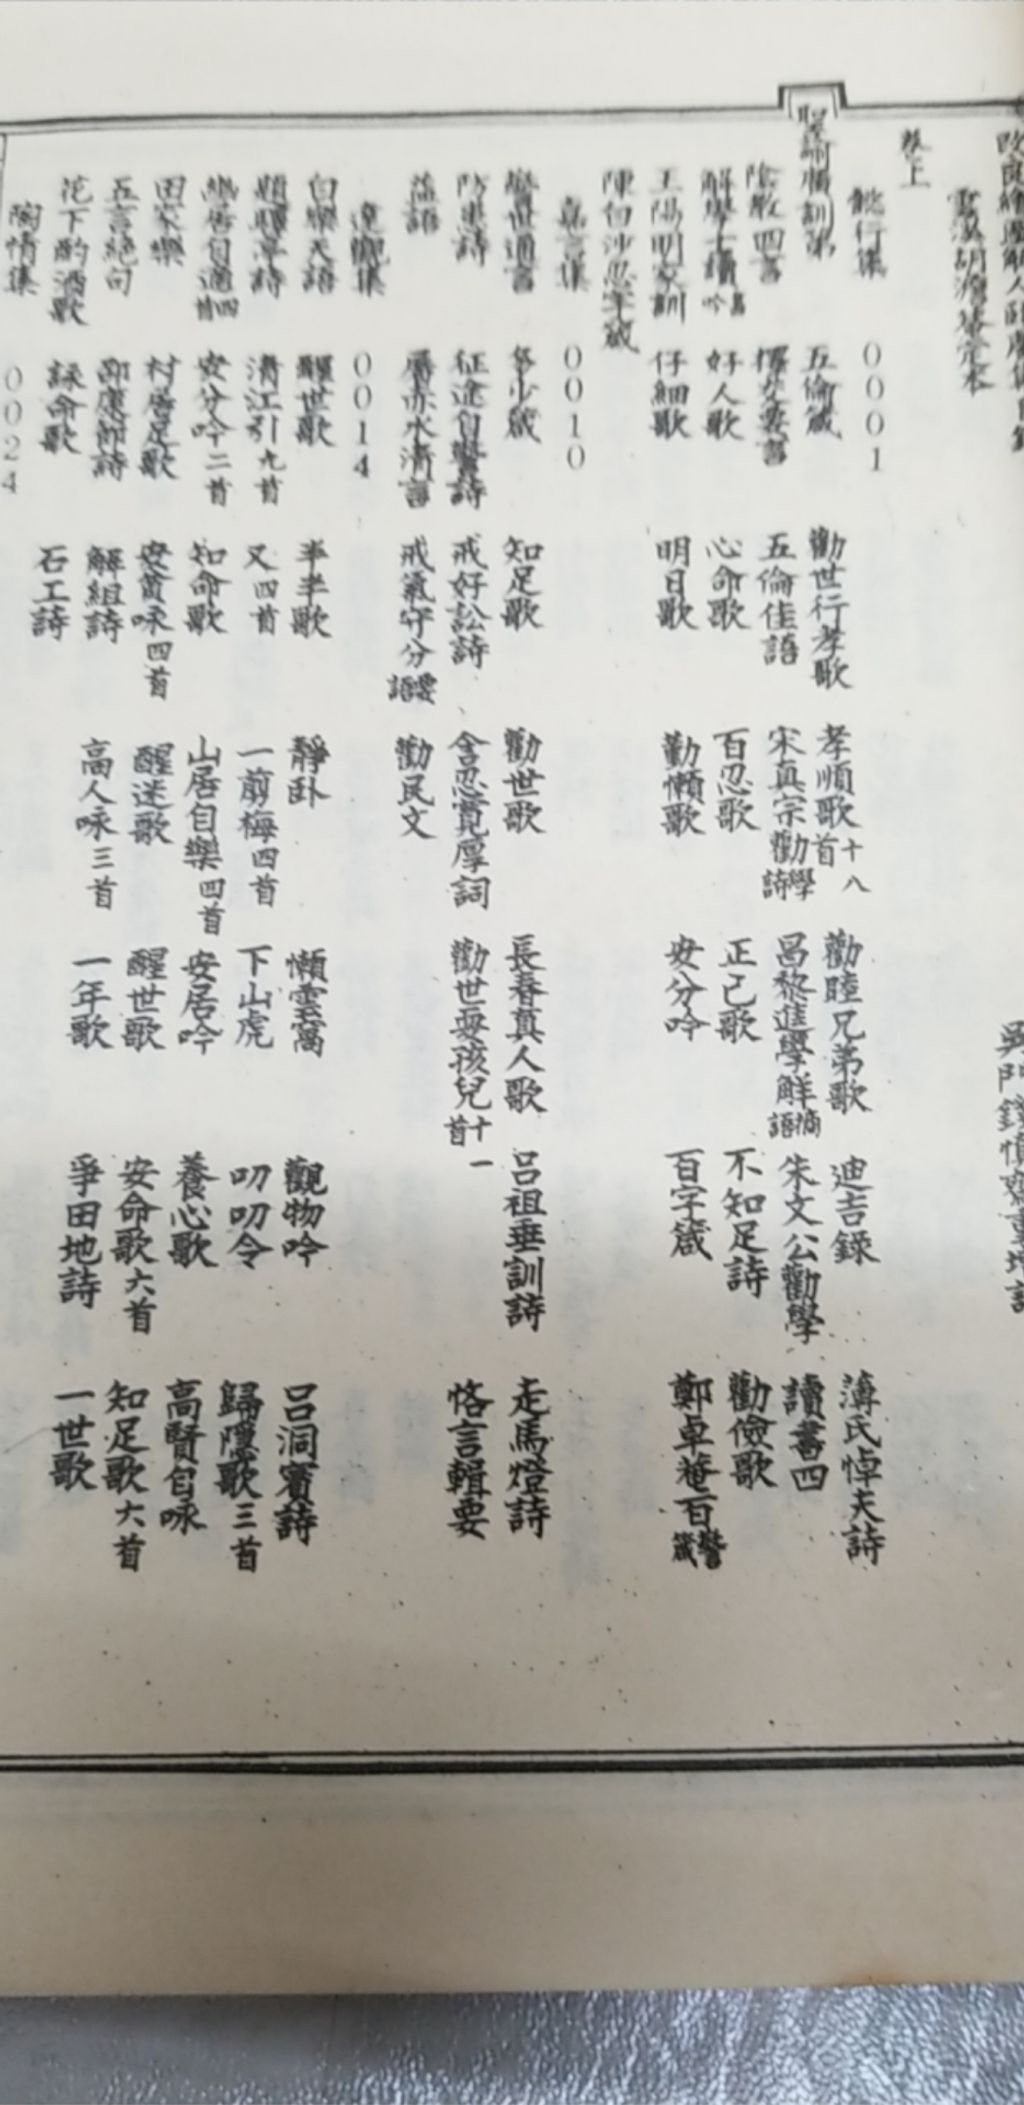 卷上
懿行集 0001
聖諭順訓第 五倫箴 勸世行孝歌 孝順歌十八首 勸睦兄弟歌 迪吉錄 薄氏悼夫詩
四言 五倫佳語 宋真宗勸學詩 昌黎進學解摘語 朱文公勸學 讀書四
解學士 好人歌 心命歌 百忍歌 正己歌 不知足詩 勸儉歌
王陽明家訓 仔細歌 明日歌 勸懶歌 安分吟 百字箴 鄭卓菴百警箴
陳白沙忍字箴
嘉言集 0010
警世通言 多少箴 知足歌 勸世歌 長春真人歌 呂祖垂訓詩 走馬燈詩
征途自警詩 戒好訟詩 含忍寬厚詞 勸世耍孩兒十一首 恪言輯要
屠赤水清言 戒氣守分要語 勸民文
達觀集 0014
白樂天語 醒世歌 半半歌 靜卧 懶雲窩 觀物吟 呂洞賓詩
清江引九首 又四首 一剪梅四首 下山虎 叨叨令 歸隱歌三首
自適四首 安分吟二首 知命歌 山居自樂四首 安居吟 養心歌 高賢自咏
田家樂 村居足歌 安貧咏四首 醒迷歌 醒世歌 安命歌六首 知足歌六首
五言絕句 邵康節詩 解組詩 高人咏三首 一年歌 爭田地詩 一世歌
花下酌酒歌 命歌 石工詩
陶情集 0024